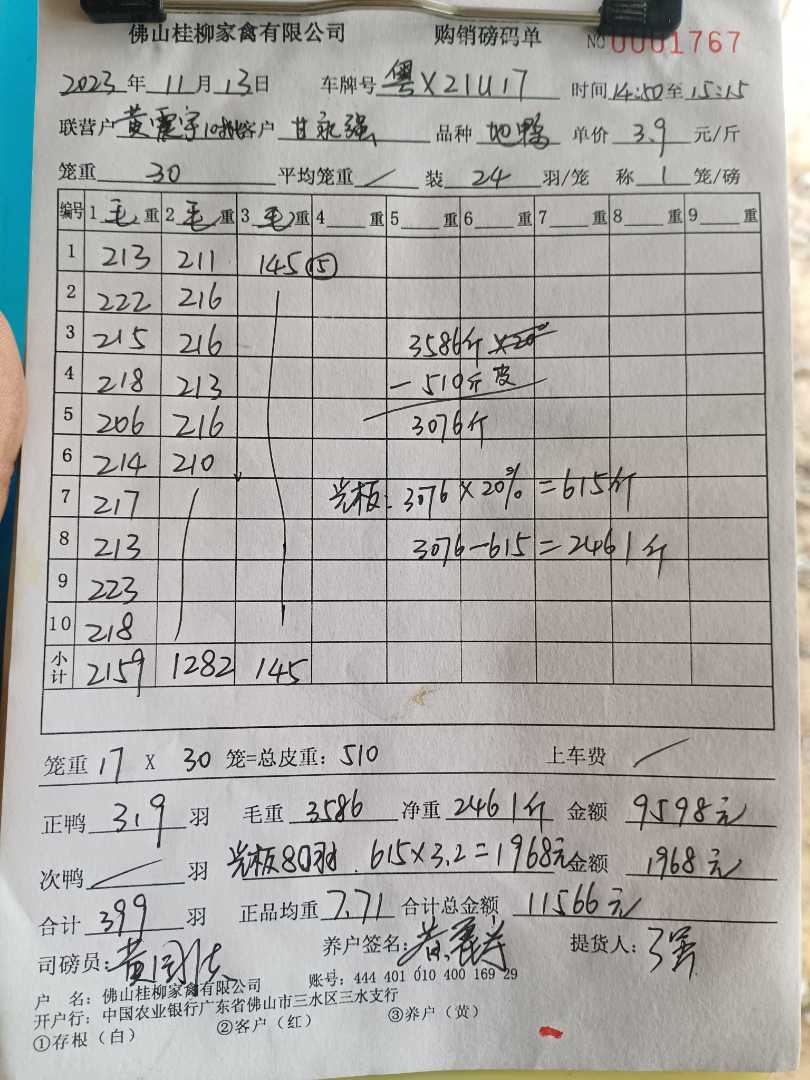 佛山桂柳家禽有限公司 购销磅码单 No 0001767
2023年11月13日 车牌号 粤X21U17 时间14:50至15:15
联营户 黄震宇10批 客户 甘永强 品种 地鸭 单价 3.9 元/斤
笼重 30 平均笼重 / 装 24 羽/笼 称 1 笼/磅
编号 1 毛 重 2 毛 重 3 毛 重 4 重 5 重 6 重 7 重 8 重 9 重
1 213 211 145 ⑤
2 222 216
3 215 216 3586斤 ×20%
4 218 213 -510斤皮
5 206 216 3076斤
6 214 210
7 217 光板: 3076×20%=615斤
8 213 3076-615=2461斤
9 223
10 218
小计 2159 1282 145
笼重 17 X 30 笼=总皮重: 510 上车费 /
正鸭 319 羽 毛重 3586 净重 2461斤 金额 9598元
次鸭 / 羽 光板80羽. 615×3.2=1968元 金额 1968元
合计 399 羽 正品均重 7.71 合计总金额 11566元
司磅员: 养户签名: 提货人:
户 名: 佛山桂柳家禽有限公司 账号: 444 401 010 400 169 29
开户行: 中国农业银行广东省佛山市三水区三水支行
①存根(白) ②客户(红) ③养户(黄)